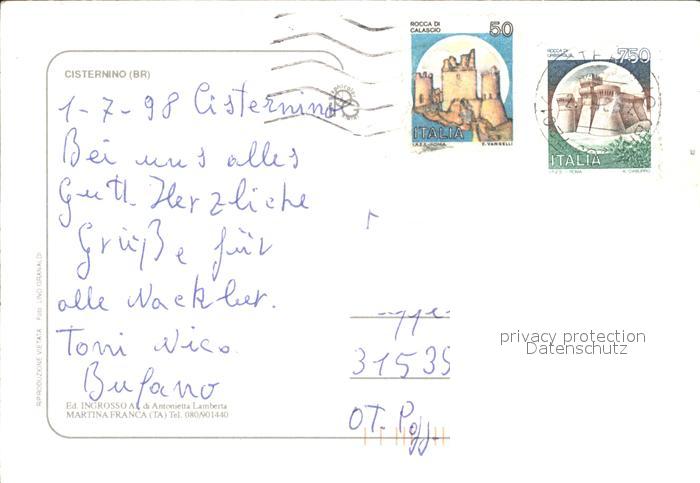 CISTERNINO (BR)
1-7-98 Cisternino
Bei uns alles
Gutt. Herzliche
Grüße für
alle Nackber.
Toni Nico
Bufano
Ed. INGROSSO A. di Antonietta Lamberta
MARTINA FRANCA (TA) Tel. 080/901440
RIPRODUZIONE VIETATA - Foto: LINO GRANALDI
ROCCA DI
CALASCIO
50
ITALIA
I.P.Z.S. - ROMA E. VANGELLI
ROCCA DI
URBISAGLIA
750
ITALIA
I.P.Z.S. - ROMA
privacy protection
Datenschutz
31535
OT. Pogg.